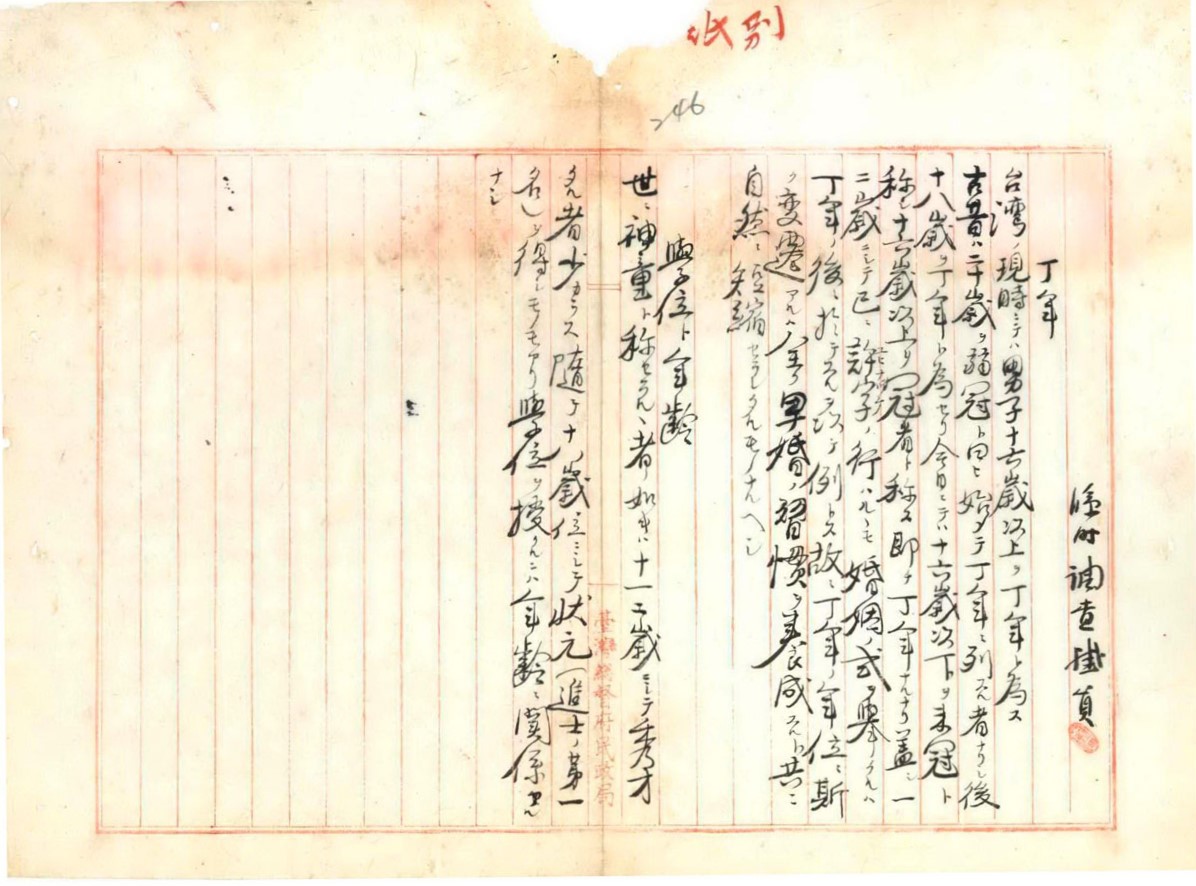 別紙
246
臨時調査掛員
丁年
台湾ノ現時ニテハ男子十六歳以上ヲ丁年ト為ス
古昔ハ二十歳ヲ弱冠ト曰ヒ始メテ丁年ニ列スル者ナリシ後
十八歳ヲ丁年ト為セリ今日ニテハ十六歳以下ヲ未冠ト
称シ十六歳以上ヲ冠者ト称ス即チ丁年ナルナリ盖シ一
二歳ニシテ已ニ許字ノ行ハルヽモ婚姻ノ式ヲ挙クルハ
丁年ノ後ニ於テスルヲ以テ例トス故ニ丁年ノ年位ニ斯
ク変遷アルハ全ク早婚ノ習慣ヲ養成スルト共ニ
自然ニ短縮セラレタルモノナルヘシ
学位ト年齢
世ニ神童ト称セラルヽ者ノ如キハ十一二歳ニシテ秀才
タル者少カラス随テ十八歳位ニシテ状元（進士ノ第一
名）ヲ得シモノモアリ学位ヲ授クルニハ年齢ニ関係スル
ナシ
臺灣総督府民政局